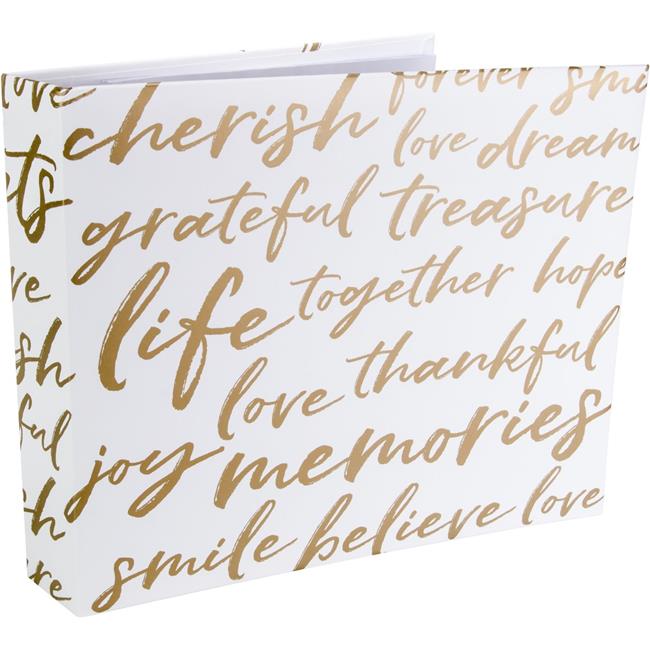 forever smi
cherish
love dream
grateful treasure
together hope
life
love thankful
joy memories
smile believe love
love
ets
ve
sh
ful
sh
re